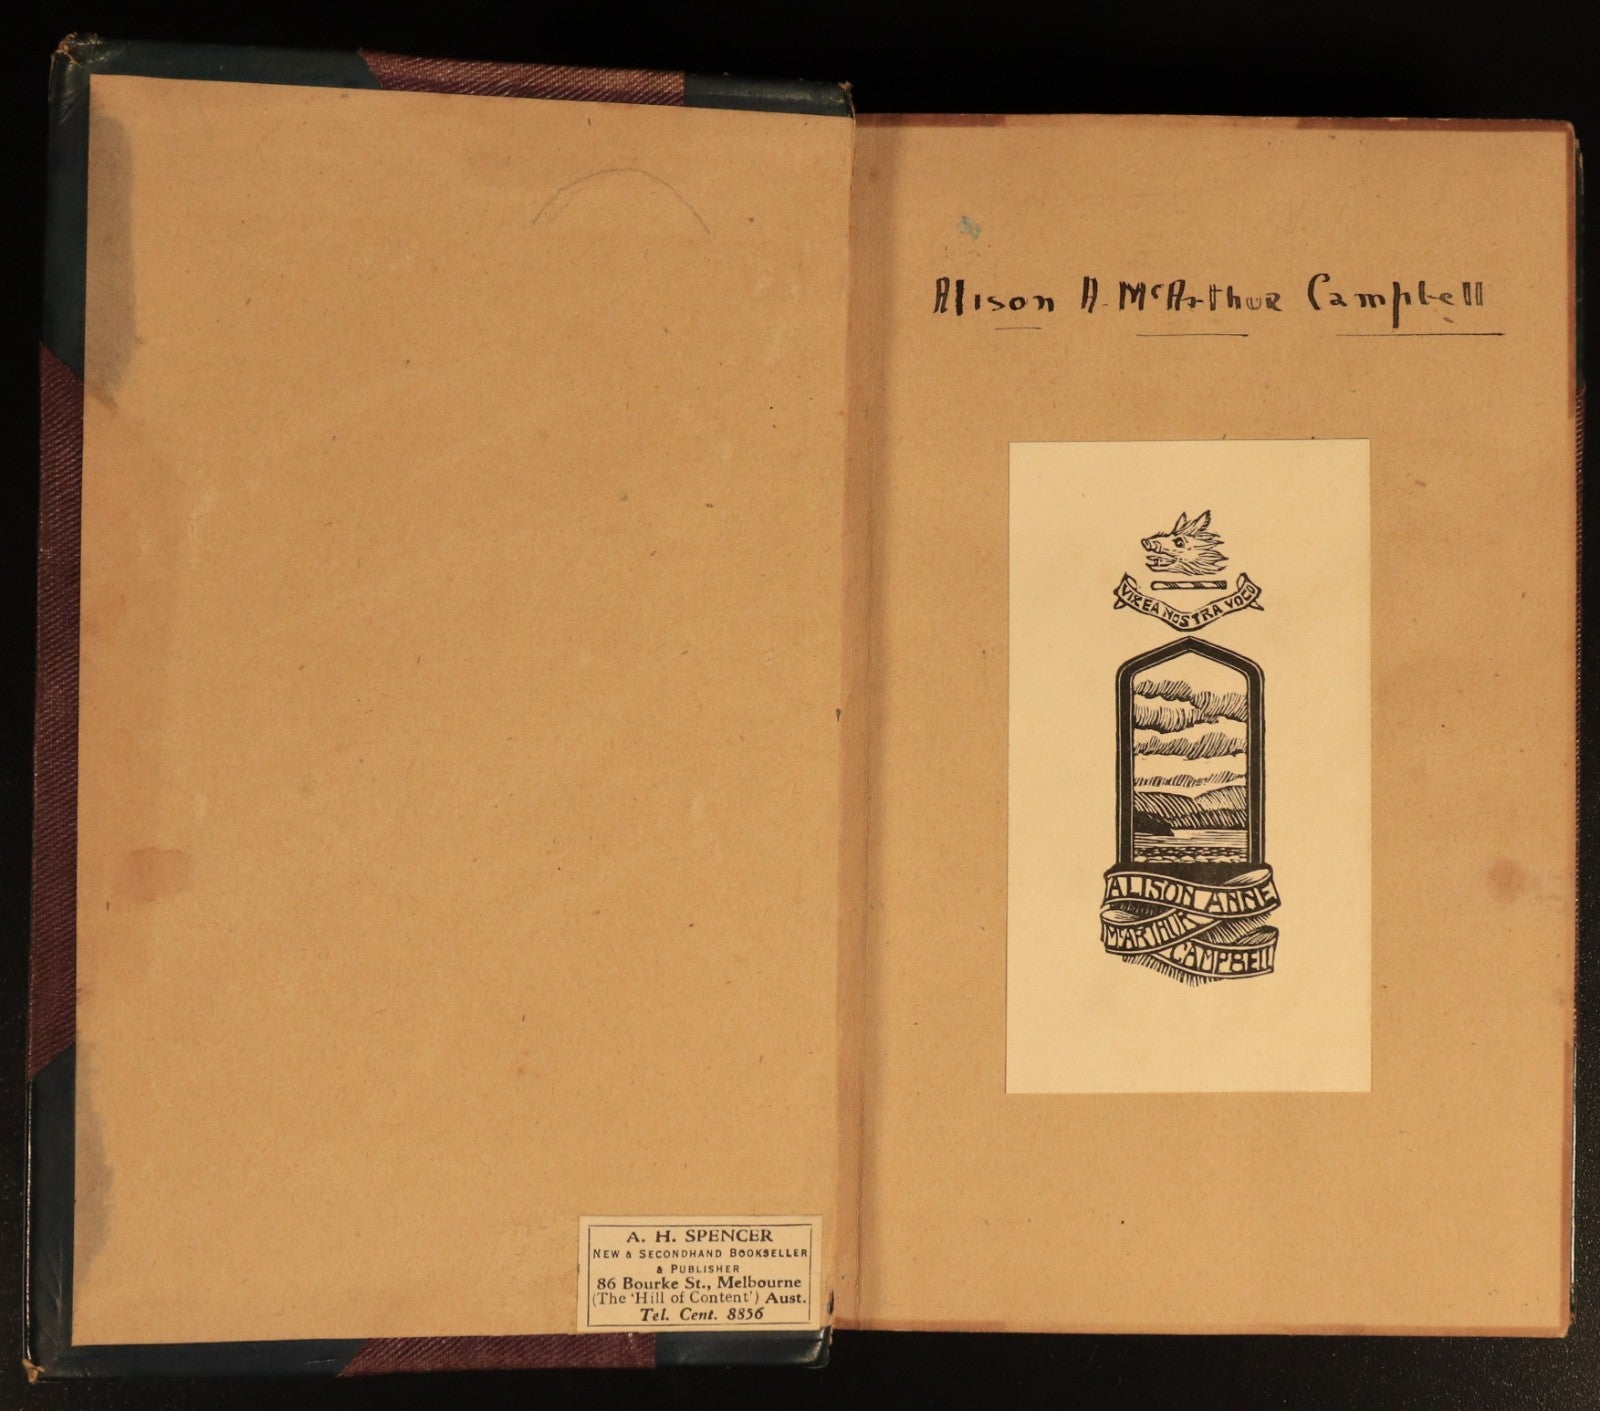 A. H. SPENCER
NEW & SECONDHAND BOOKSELLER
& PUBLISHER
86 Bourke St., Melbourne
(The 'Hill of Content') Aust.
Tel. Cent. 8856
Alison A. McArthur Campbell
VIX EA NOSTRA VOCO
ALISON ANNE
McARTHUR
CAMPBELL